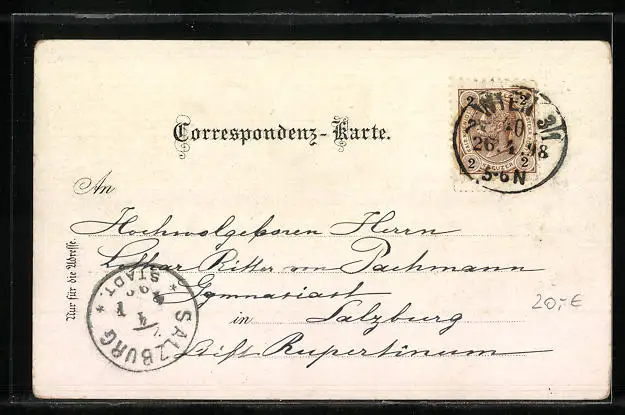 Correspondenz-Karte.
2 2
WIEN
26. 4. 98
5-6N
KREUZER
2 2
An
Hochwolgeboren Herrn
Lothar Ritter von Pachmann
Gymnasiast
in Salzburg
Stift Rupertinum
Nur für die Adresse.
SALZBURG
STADT
20,-€